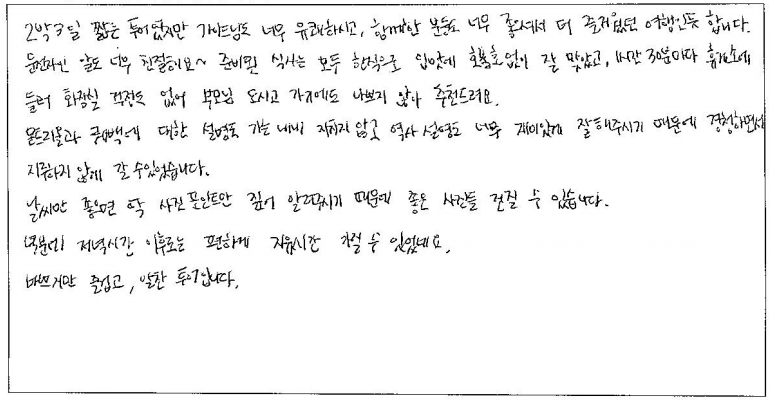 2박3일 짧은 투어였지만 가이드님도 너무 유쾌하시고, 함께한 분들도 너무 좋으셔서 더 즐거웠던 여행인듯 합니다.
운전하신 알도 너무 친절해요~ 준비된 식사는 모두 한식으로 입맛에 호불호없이 잘 맞았고, 1시간 30분마다 휴게소에
들러 화장실 걱정도 없어 부모님 모시고 가기에도 나쁘지 않아 추천드려요.
몬트리올과 퀘백에 대한 설명도 가는 내내 지치지 않고 역사 설명도 너무 재미있게 잘해주시기 때문에 경청하면서
지루하지 않게 갈 수있었습니다.
날씨만 좋으면 딱 사진 포인트만 짚어 알려주시기 때문에 좋은 사진들 건질 수 있습니다.
덕분에 저녁시간 이후로는 편하게 자유시간 가질 수 있었네요.
바쁘지만 즐겁고, 알찬 투어입니다.